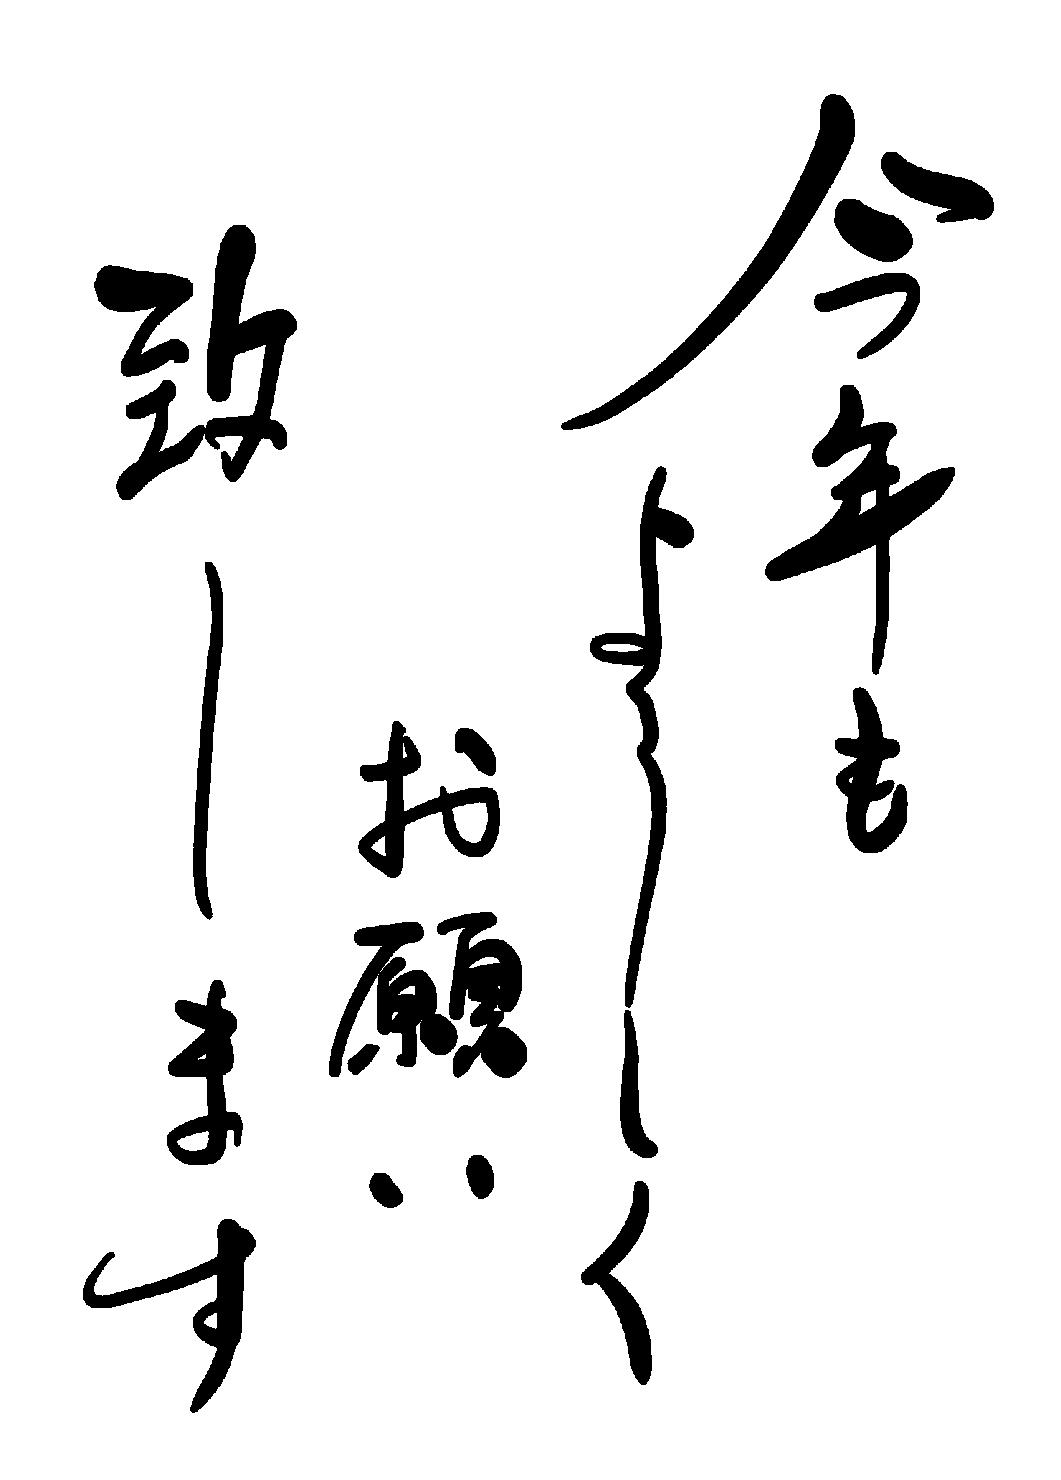 今年も
よろしく
お願い
致します